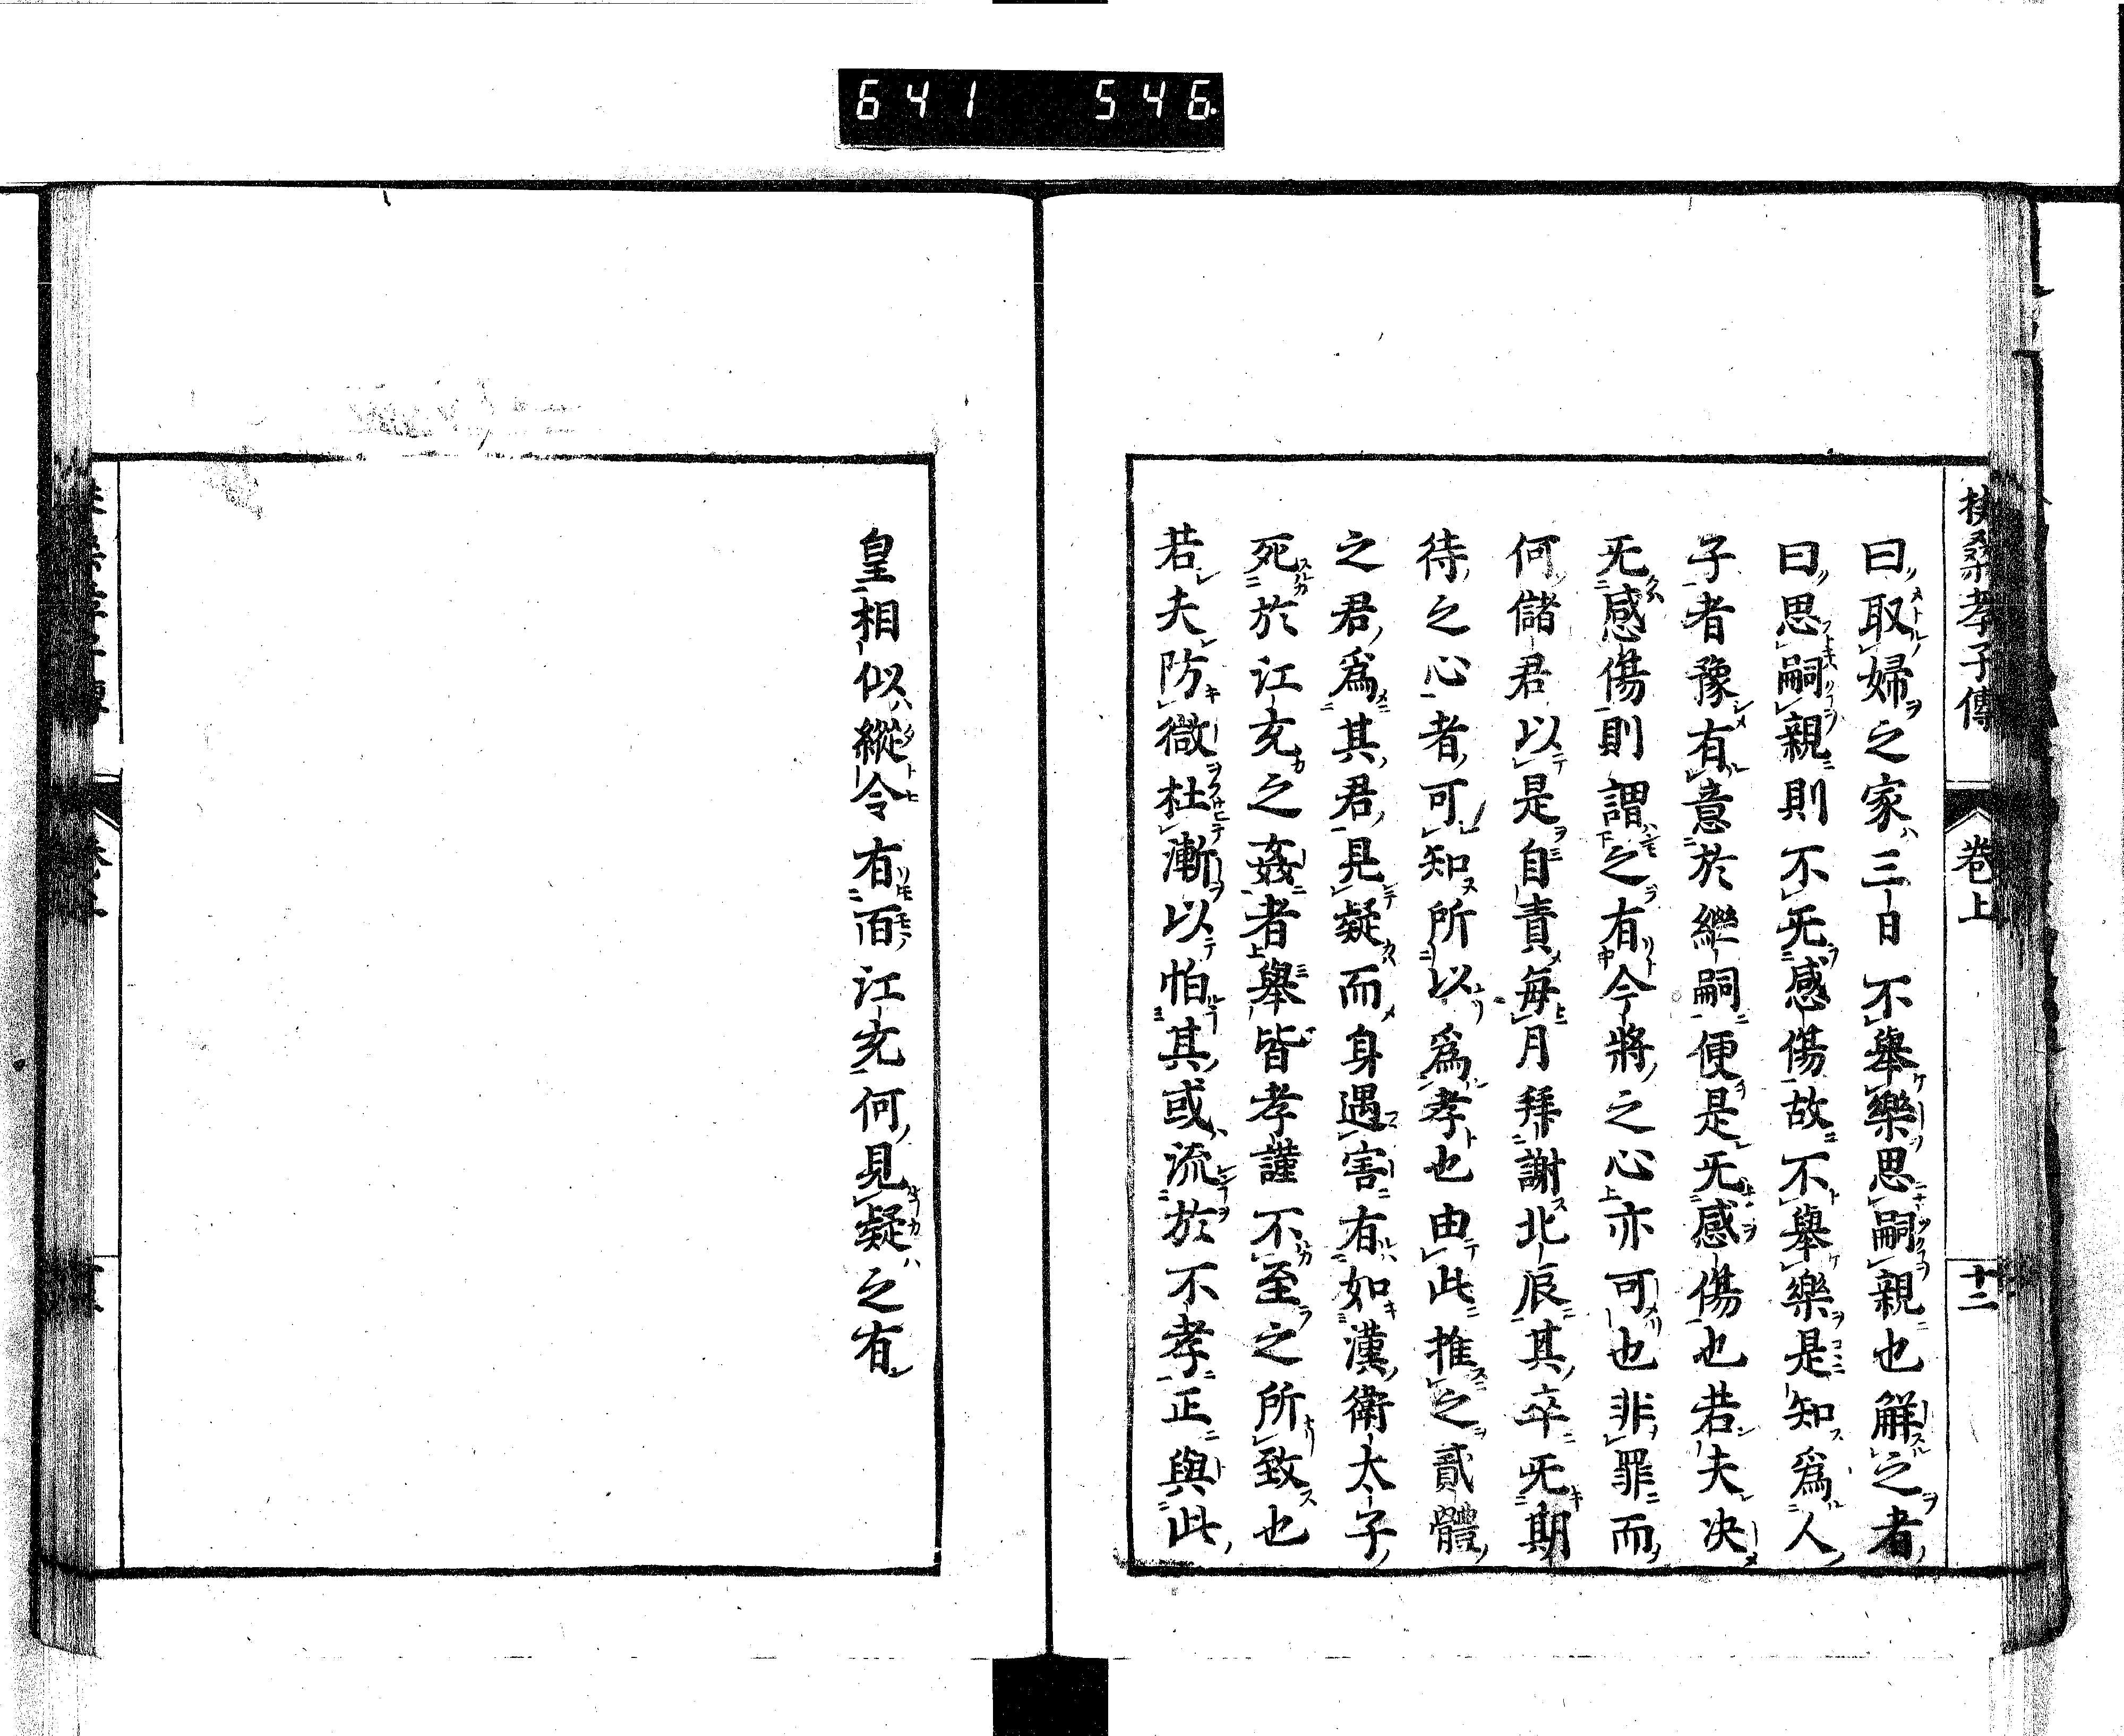 641 546
扶桑孝子傳 卷上 十二
曰取婦之家三日不舉樂思嗣親也解之者
曰思嗣親則不无感傷故不舉樂是知爲人
子者豫有意於繼嗣便是无感傷也若夫决
无感傷則謂之有今將之心亦可也非罪而
何儲君以是自責每月拜謝北辰其卒无期
待之心者可知所以爲孝也由此推之貳體
之君爲其君見疑而身遇害有如漢衛太子
死於江充之姦者舉皆孝謹不至之所致也
若夫防微杜漸以怕其或流於不孝正與此
皇相似縱令有百江充何見疑之有